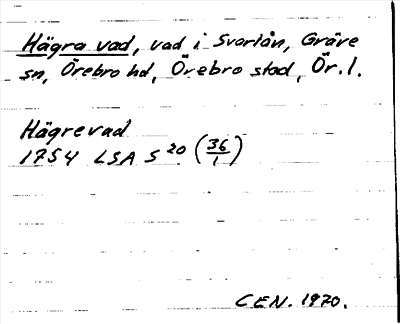 Hägra vad, vad i Svartån, Gräve
sn, Örebro hd, Örebro stad, Ör. l.
Hägrevad
1754 LSA S 20 (36/1)
CEN. 1970.